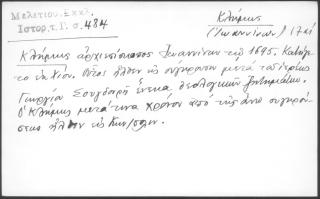 Μελετίου. Εκκλ.
Ιστορ. τ. Γ. σ. 484
Κλήμης
(Ιωαννίνων) 17 αἰ
Κλήμης ἀρχιεπίσκοπος Ἰωαννίνων τῷ 1695. Κατήγε-
το ἐκ Χίου. Οὗτος ἦλθεν εἰς σύγκρουσιν μετὰ τοῦ ἱερέως
Γεωργίου Σουγδουρῆ ἕνεκα θεολογικῶν ζητημάτων.
Ὁ Κλήμης μετά τινα χρόνον ἀπὸ τῆς ἄνω συγκρού-
σεως ἦλθεν εἰς Κων/πολιν.